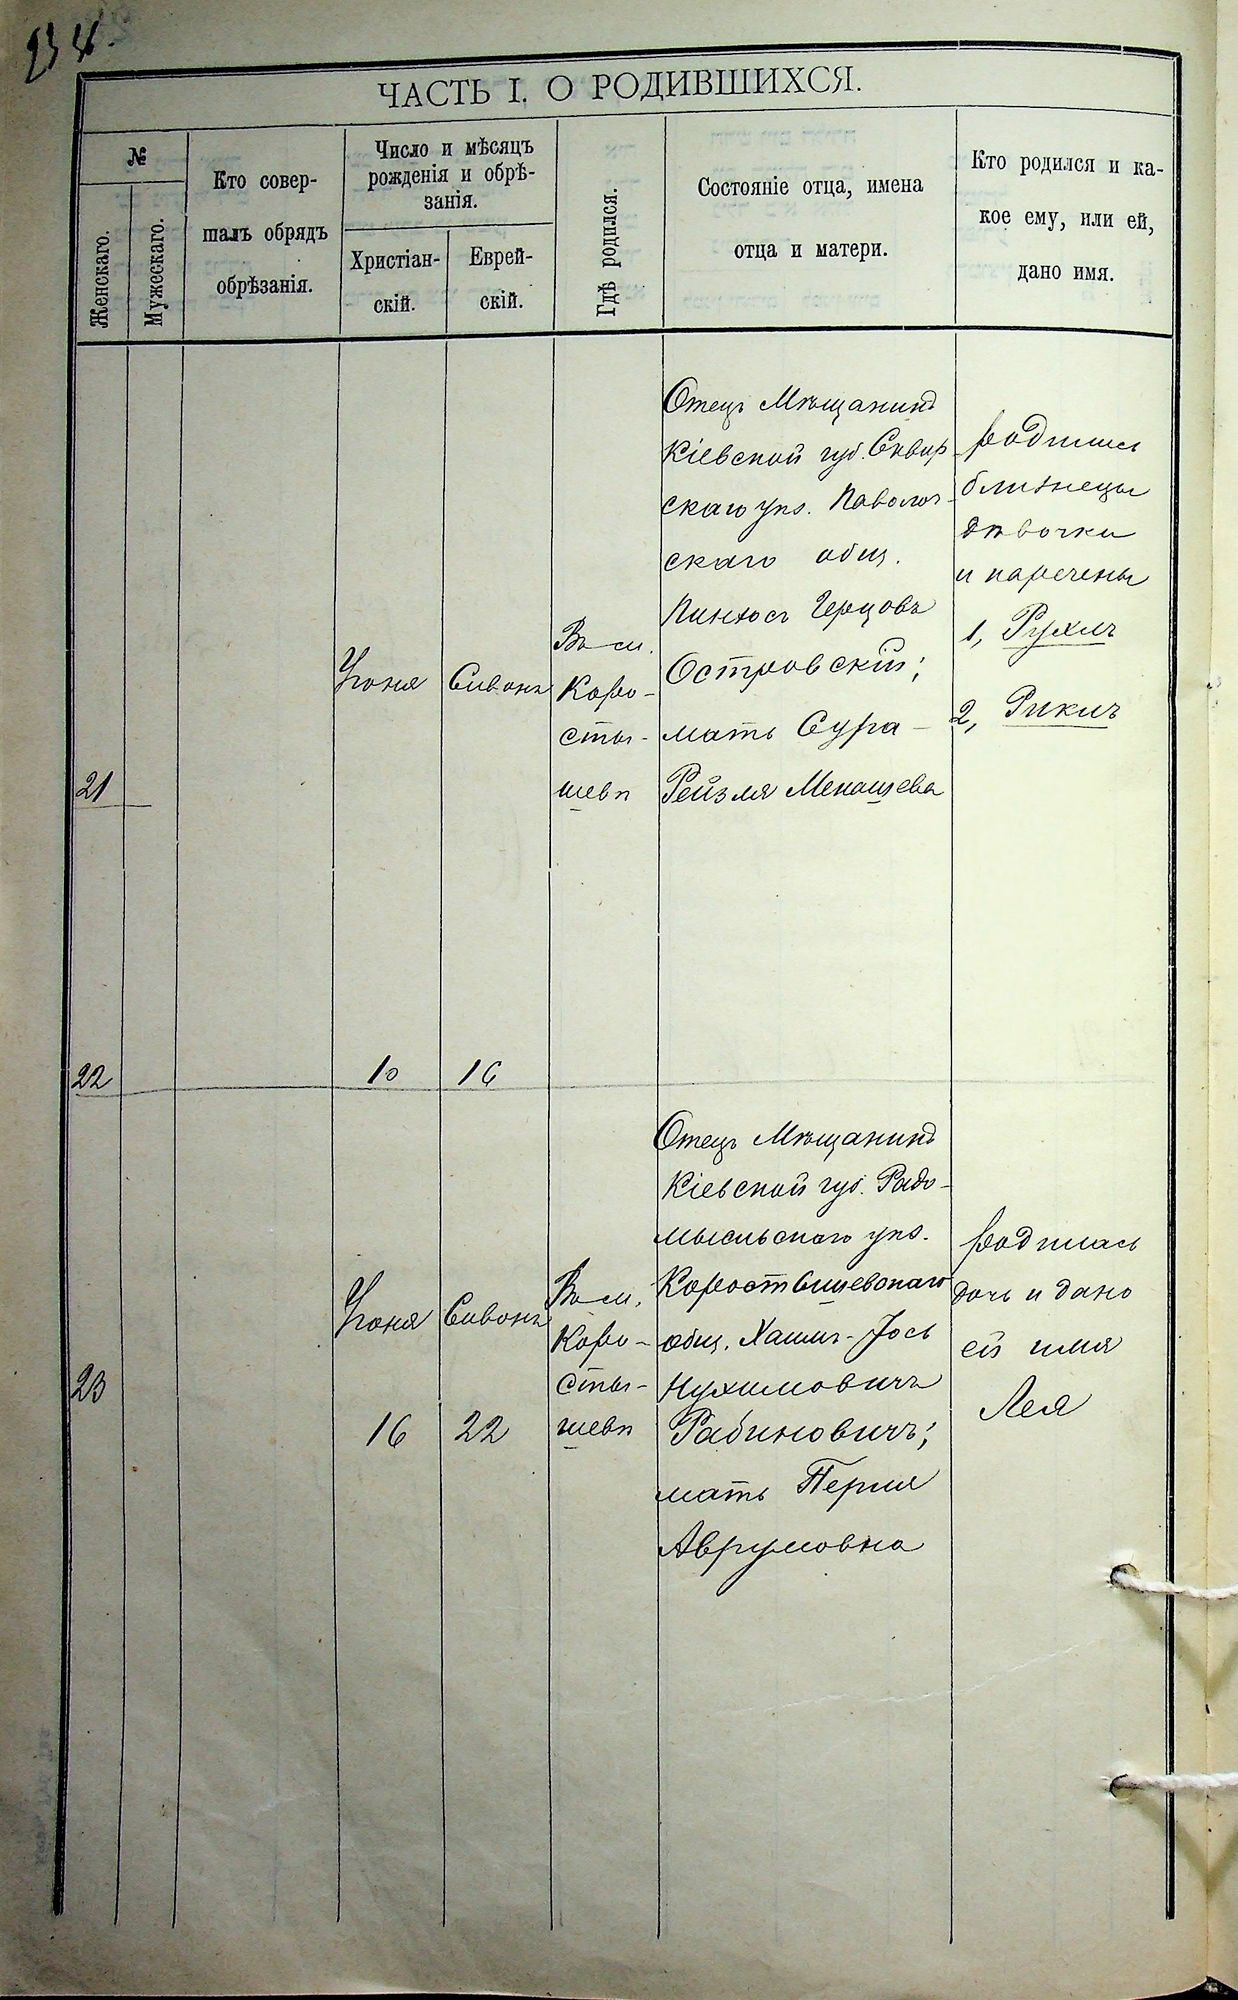 234.
ЧАСТЬ I. О РОДИВШИХСЯ.
№
Женскаго.
Мужескаго.
Кто совер-
шалъ обрядъ
обрѣзанія.
Число и мѣсяцъ
рожденія и обрѣ-
занія.
Христіан-
скій.
Еврей-
скій.
Гдѣ родился.
Состояніе отца, имена
отца и матери.
Кто родился и ка-
кое ему, или ей,
дано имя.
21
22
Іюня
10
Сивонъ
16
Въ м.
Коро-
сты-
шевѣ
Отецъ Мѣщанинъ
Кіевской губ. Сквир-
скаго уѣз. Паволоч-
скаго общ.
Пинхосъ Герцовъ
Островскій;
мать Сура-
Рейзля Менашева
родились
близнецы
дѣвочки
и наречены
1, Рухль
2, Рикль
23
Іюня
16
Сивонъ
22
Въ м.
Коро-
сты-
шевѣ
Отецъ Мѣщанинъ
Кіевской губ. Радо-
мысльскаго уѣз.
Коростышевскаго
общ. Хаимъ-Іось
Нухимовичъ
Рабиновичъ;
мать Перля
Аврумовна
родилась
дочь и дано
ей имя
Лея